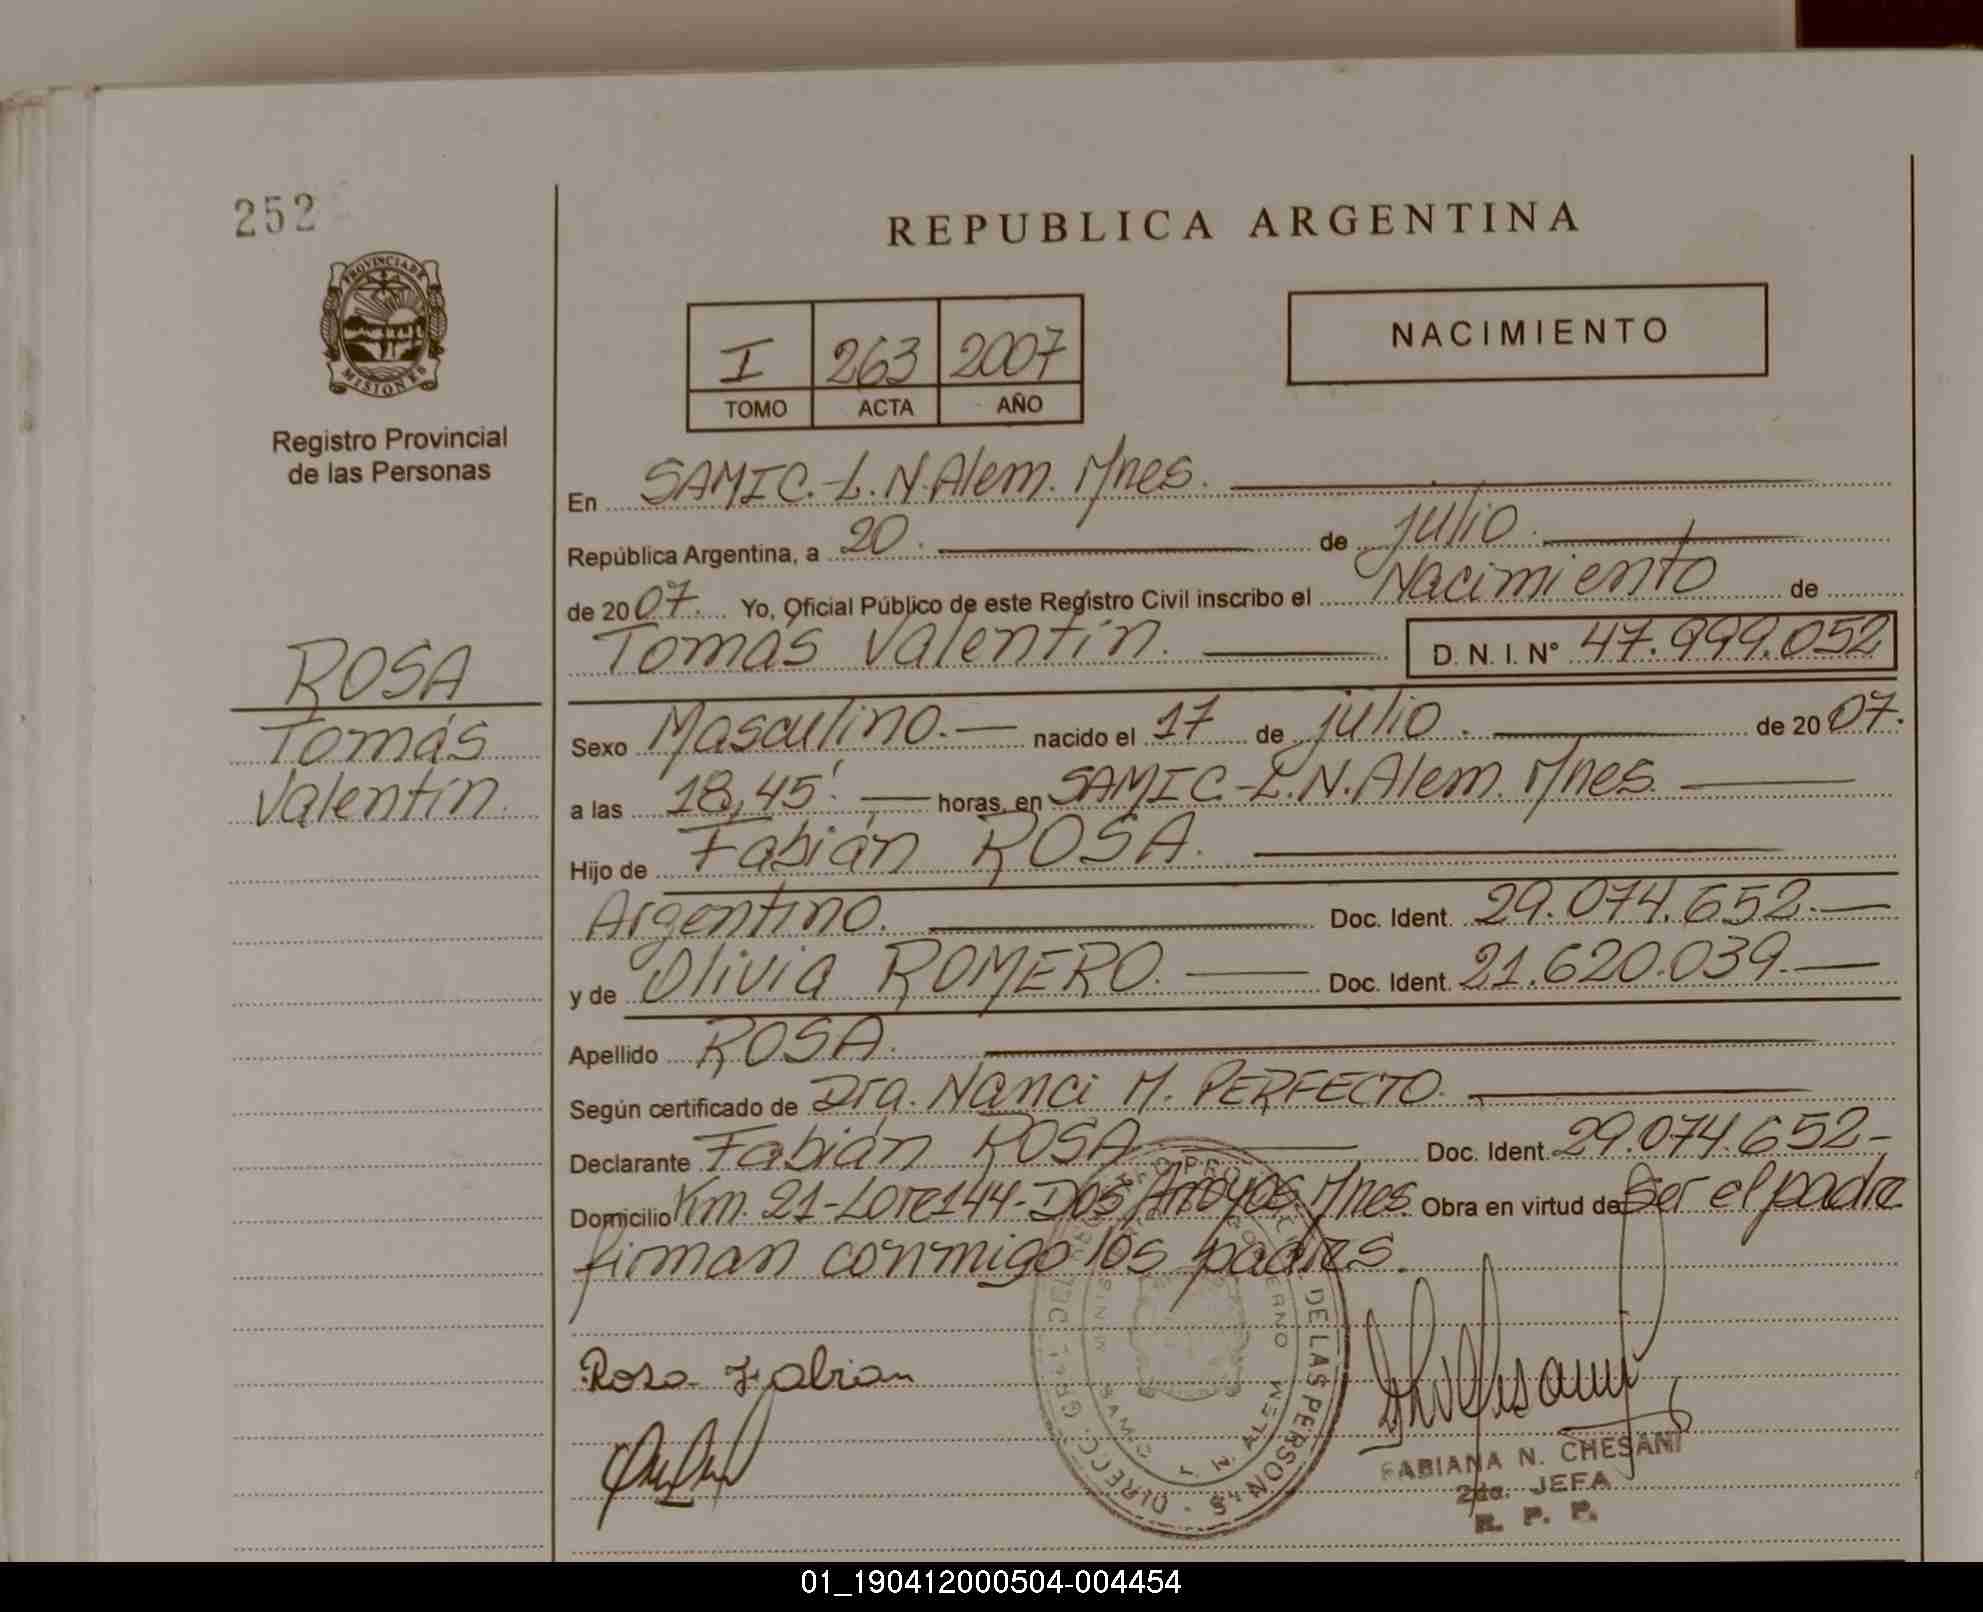 252
REPUBLICA ARGENTINA
PROVINCIA DE
MISIONES
Registro Provincial
de las Personas
I 263 2007
TOMO ACTA AÑO
NACIMIENTO
En SAMIC.-L.N.Alem. Mnes.
República Argentina, a 20. de julio.
de 2007. Yo, Oficial Público de este Registro Civil inscribo el Nacimiento de
Tomás Valentín. D. N. I. N° 47.999.052
ROSA
Tomás
Valentín.
Sexo Masculino.— nacido el 17 de julio. de 2007.
a las 18,45'. — horas, en SAMIC-L.N.Alem. Mnes.
Hijo de Fabián ROSA.
Argentino. Doc. Ident. 29.074.652.—
y de Olivia ROMERO. Doc. Ident. 21.620.039.—
Apellido ROSA.
Según certificado de Dra. Nanci M. PERFECTO.
Declarante Fabián ROSA Doc. Ident. 29.074.652-
Domicilio Km. 21-Lote144-Dos Arroyos Mnes. Obra en virtud de Ser el padre
firman conmigo los padres.
Rosa Fabian
DIRECC. GRAL. DE LAS PERSONAS
L. N. ALEM
FABIANA N. CHESANI
2da. JEFA
R. P. P.
01_190412000504-004454